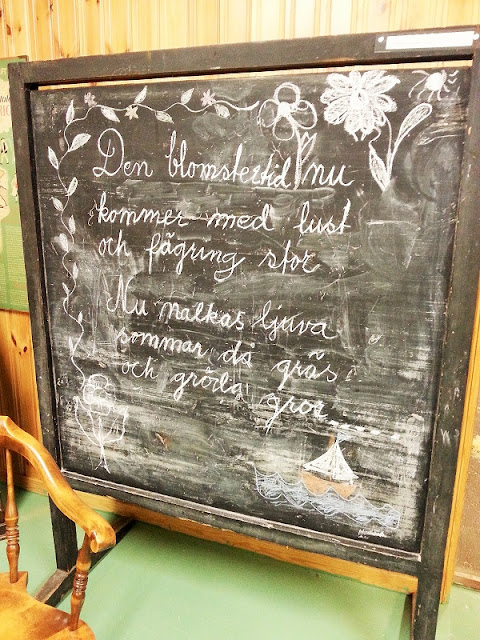 Den blomstertid nu
kommer med lust
och fägring stor
Nu nalkas ljuva
sommar, då gräs
och gröda gror